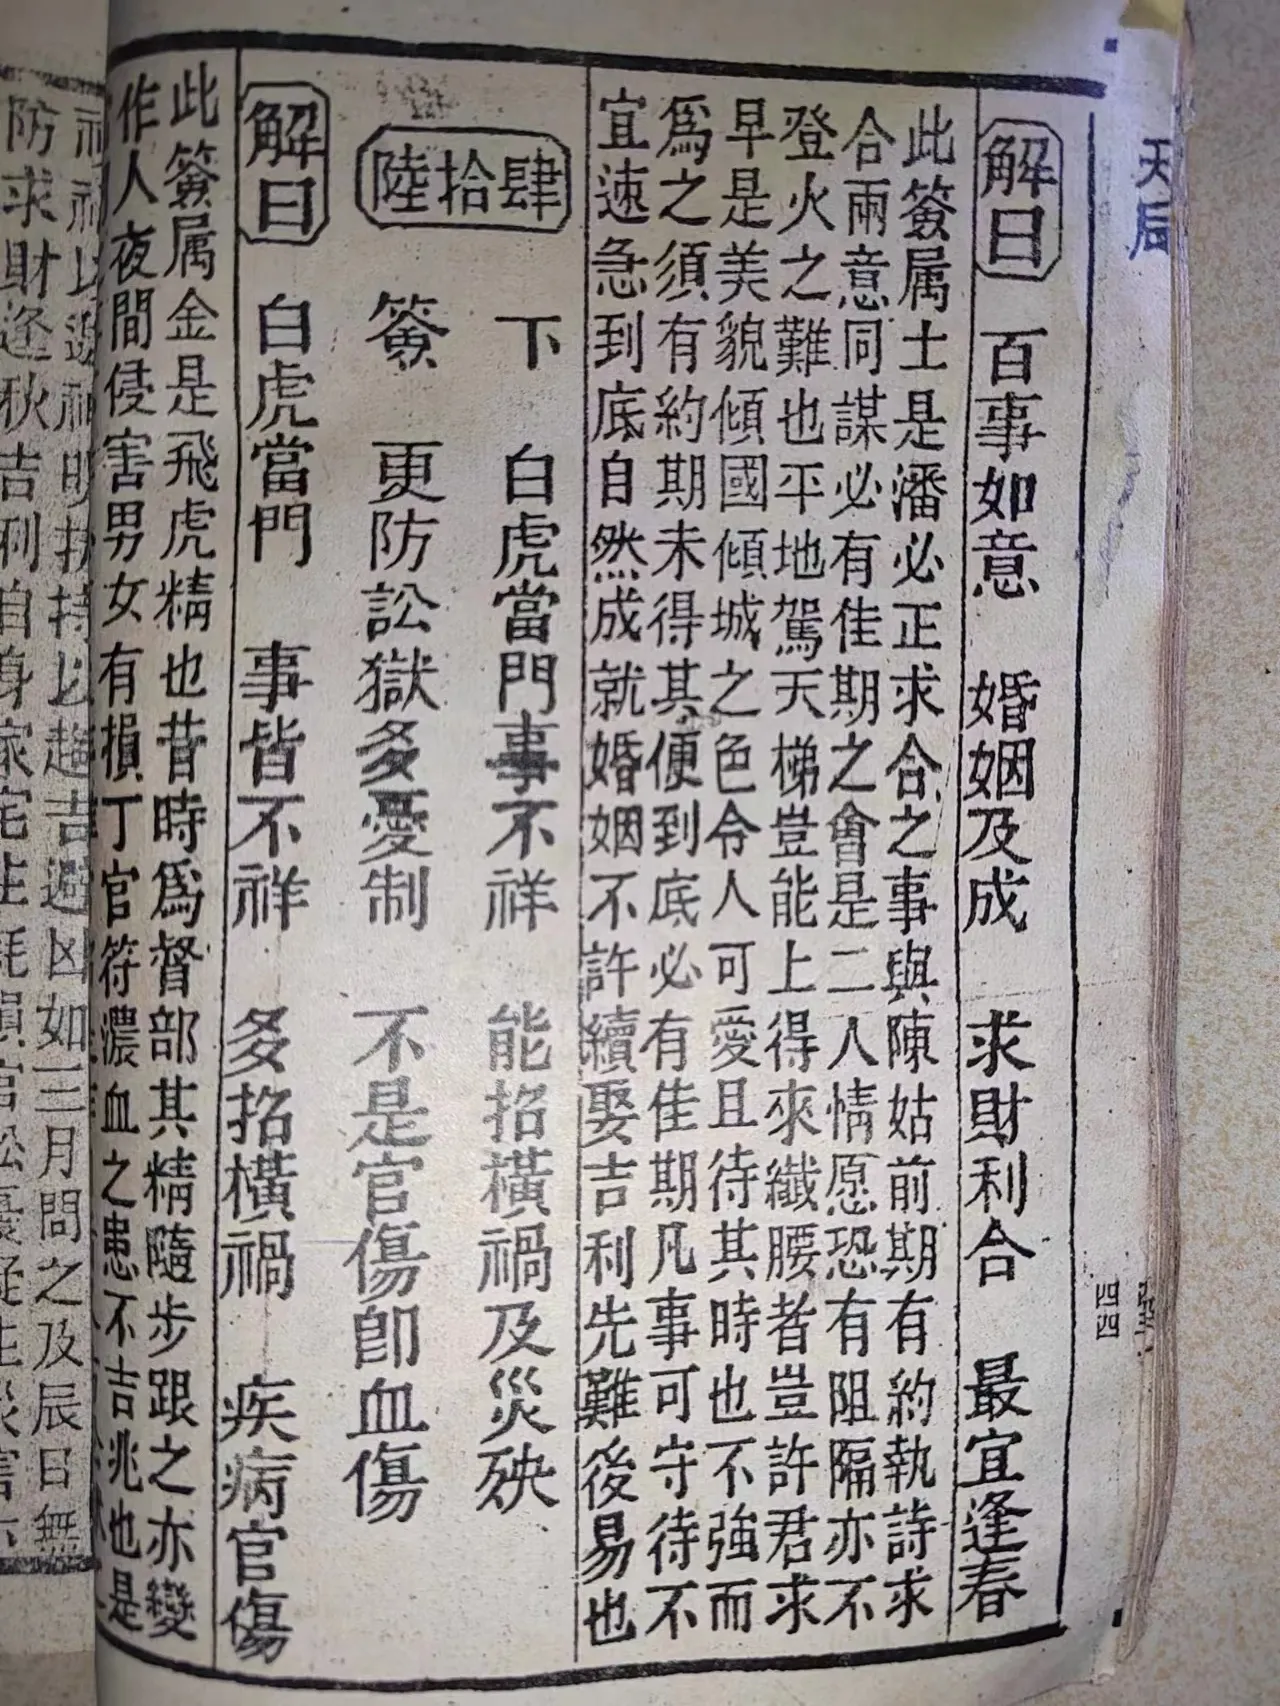 天后
四四
解曰 百事如意 婚姻及成 求財利合 最宜逢春
此簽属土是潘必正求合之事與陳姑前期有約執詩求
合兩意同謀必有佳期之會是二人情愿恐有阻隔亦不
登火之難也平地駕天梯豈能上得來纖腰者豈許君求
早是美貌傾國傾城之色令人可愛且待其時也不強而
爲之須有約期未得其便到底必有佳期凡事可守待不
宜速急到底自然成就婚姻不許續娶吉利先難後易也
陸拾肆
下 白虎當門事不祥 能招橫禍及災殃
簽 更防訟獄多憂制 不是官傷卽血傷
解曰 白虎當門 事皆不祥 多招橫禍 疾病官傷
此簽属金是飛虎精也昔時爲督部其精隨步跟之亦變
作人夜間侵害男女有損丁官符濃血之患不吉兆也是
明扶持以趨吉避凶如三月問之及辰日無
防求財逢秋吉利自身家宅生耗損官訟憂疑生災害